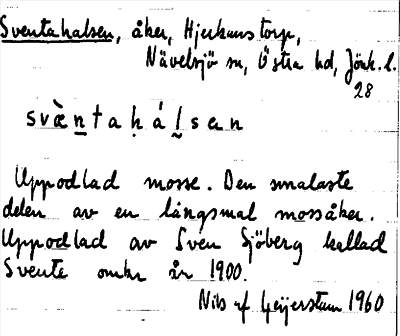 Sventahalsen, åker, Hjerkans torp,
Nävelsjö sn, Östra hd, Jönk. l.
28
svæ̀ṇtaḥáḷsen
Uppodlad mosse. Den smalaste
delen av en långsmal mossåker.
Uppodlad av Sven Sjöberg kallad
Svente omkr år 1900.
Nils af Geijerstam 1960